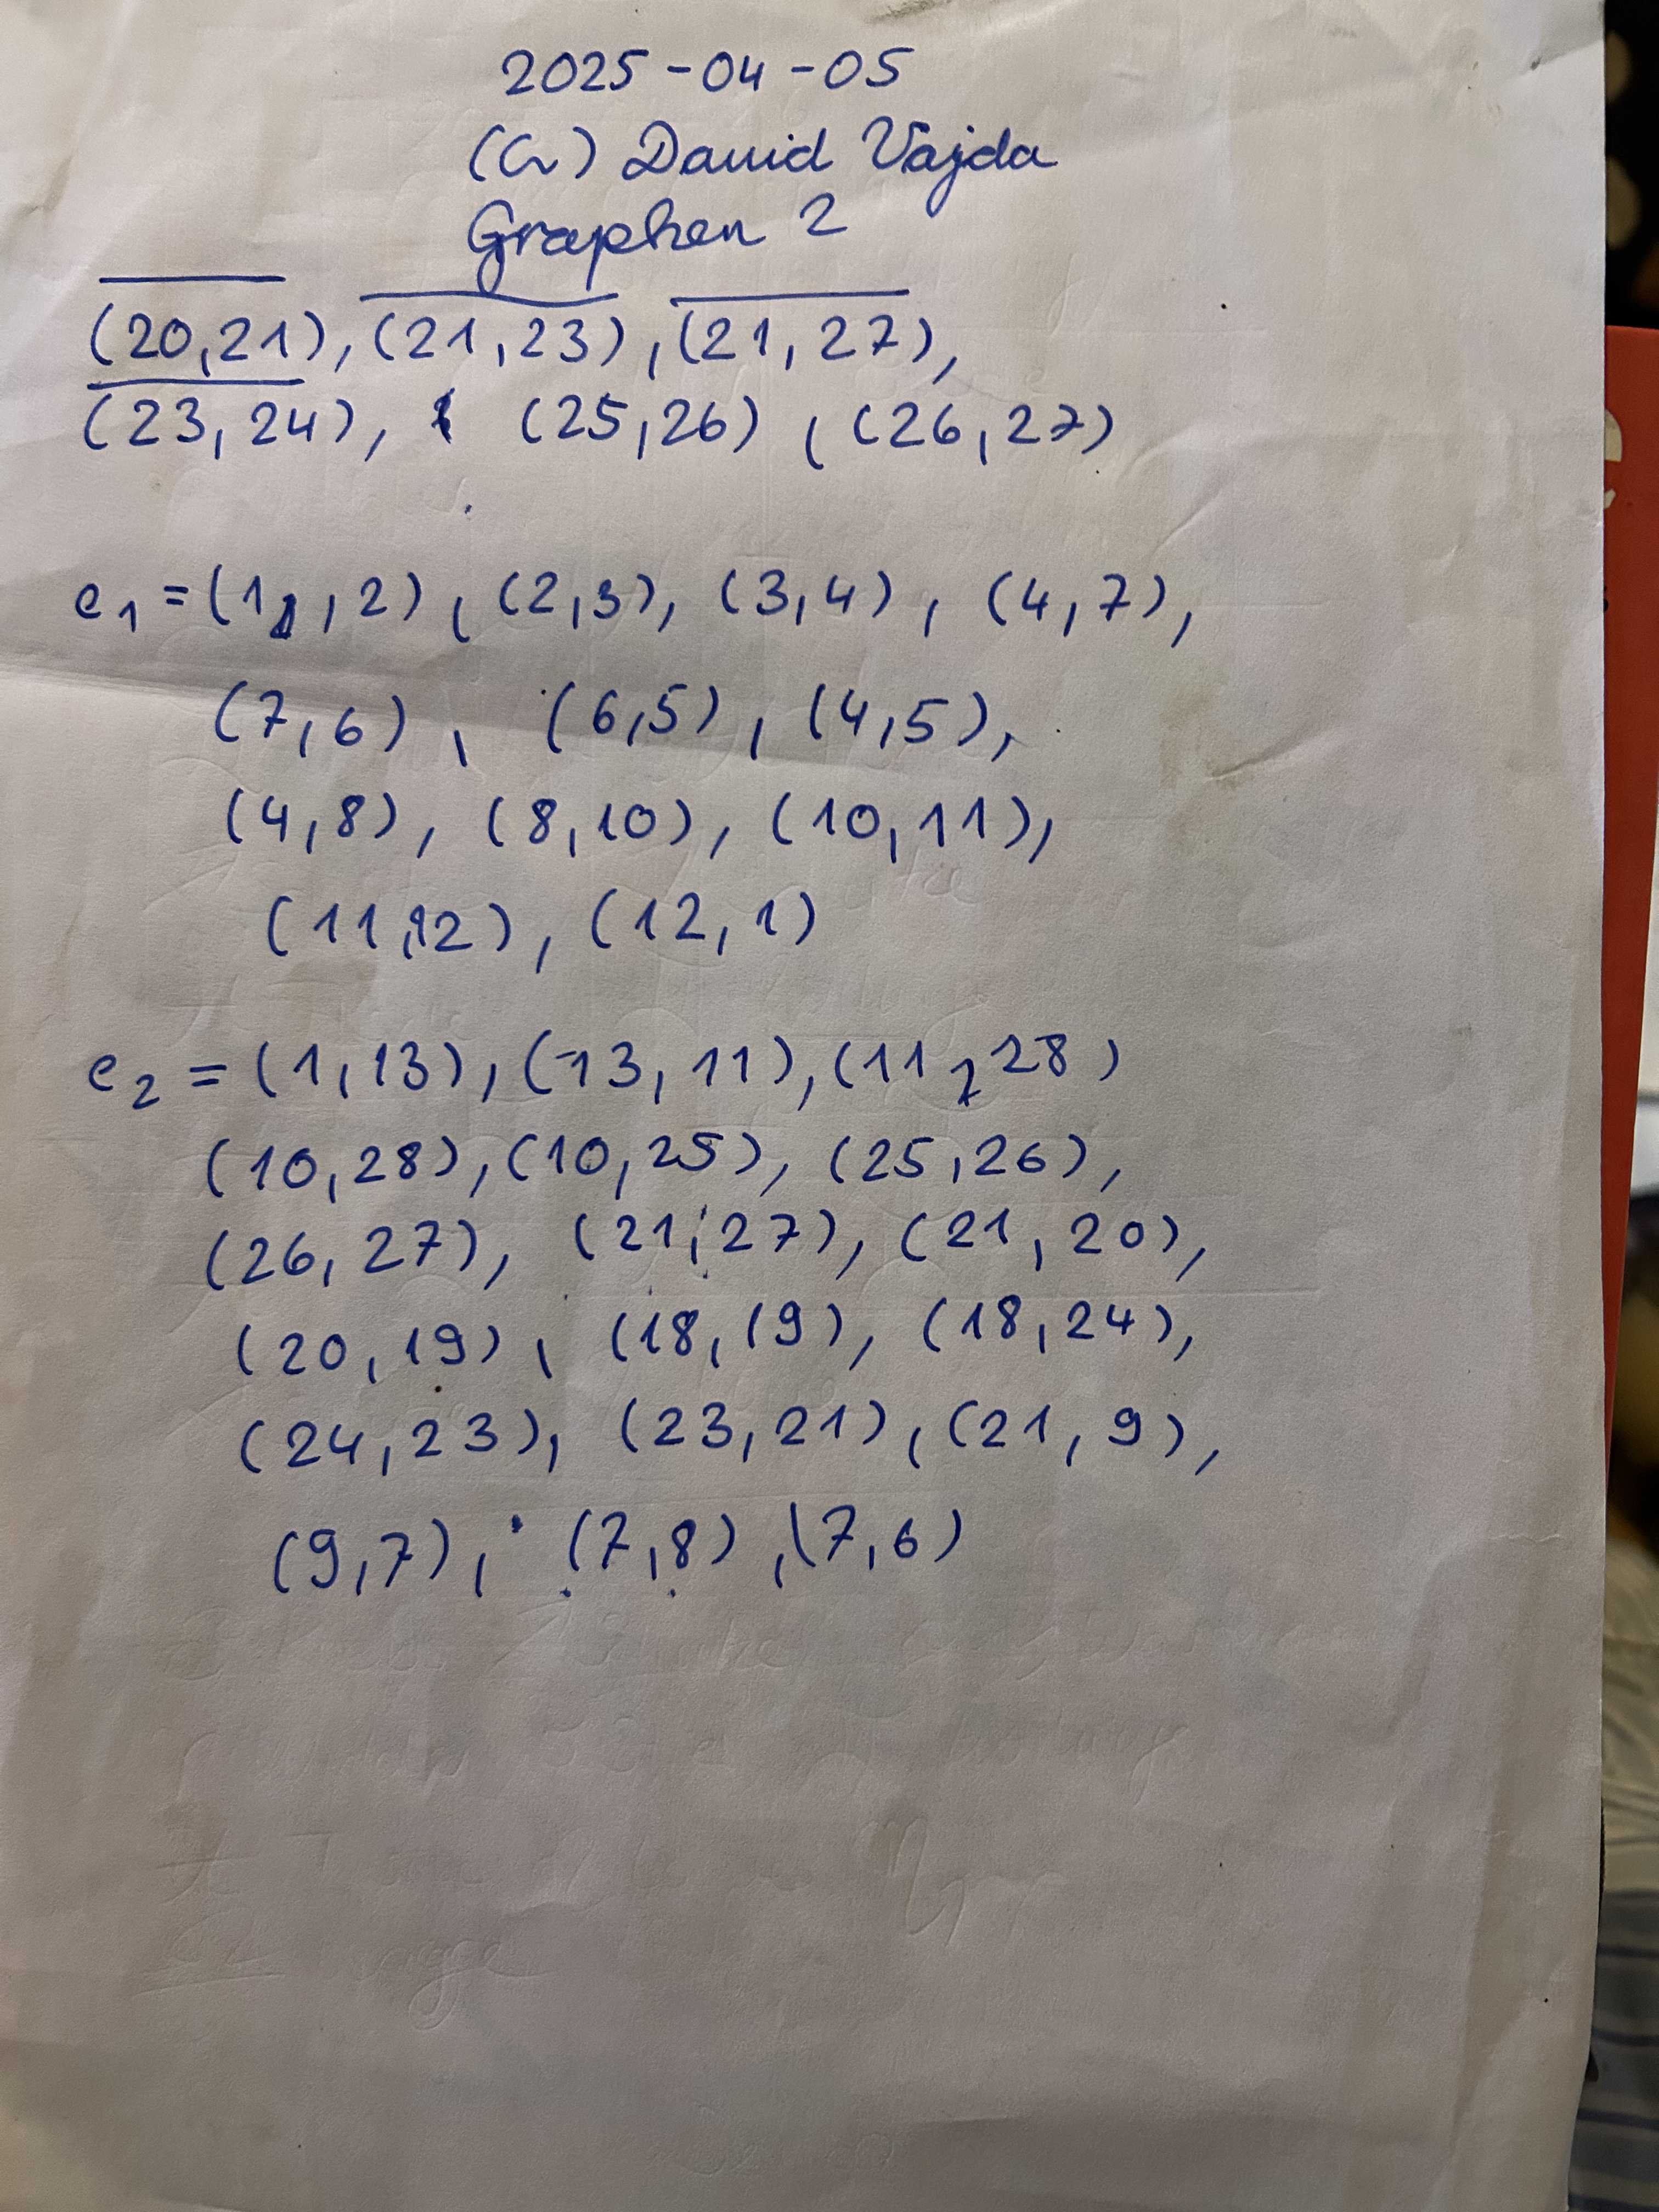 2025-04-05
(C) David Vajda
Graphen 2
(20,21), (21,23), (21,27),
(23,24), (25,26), (26,27)
e1 = (1,2), (2,3), (3,4), (4,7),
(7,6), (6,5), (4,5),
(4,8), (8,10), (10,11),
(11,12), (12,1)
e2 = (1,13), (13,11), (11,28)
(10,28), (10,25), (25,26),
(26,27), (21,27), (21,20),
(20,19), (18,19), (18,24),
(24,23), (23,21), (21,9),
(9,7), (7,8), (7,6)